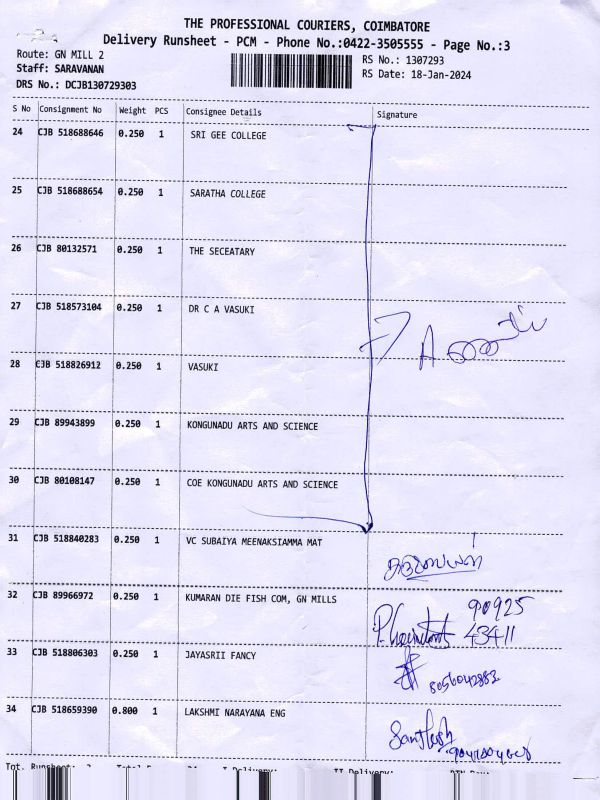 THE PROFESSIONAL COURIERS, COIMBATORE
Delivery Runsheet - PCM - Phone No.:0422-3505555 - Page No.:3
Route: GN MILL 2
RS No.: 1307293
Staff: SARAVANAN
RS Date: 18-Jan-2024
DRS No.: DCJB130729303
S No Consignment No Weight PCS Consignee Details Signature
24 CJB 518688646 0.250 1 SRI GEE COLLEGE
25 CJB 518688654 0.250 1 SARATHA COLLEGE
26 CJB 80132571 0.250 1 THE SECEATARY
27 CJB 518573104 0.250 1 DR C A VASUKI
28 CJB 518826912 0.250 1 VASUKI
29 CJB 89943899 0.250 1 KONGUNADU ARTS AND SCIENCE
30 CJB 80108147 0.250 1 COE KONGUNADU ARTS AND SCIENCE
31 CJB 518840283 0.250 1 VC SUBAIYA MEENAKSIAMMA MAT
32 CJB 89966972 0.250 1 KUMARAN DIE FISH COM, GN MILLS 90925
43411
33 CJB 518806303 0.250 1 JAYASRII FANCY 8056042883
34 CJB 518659390 0.800 1 LAKSHMI NARAYANA ENG Santhosh